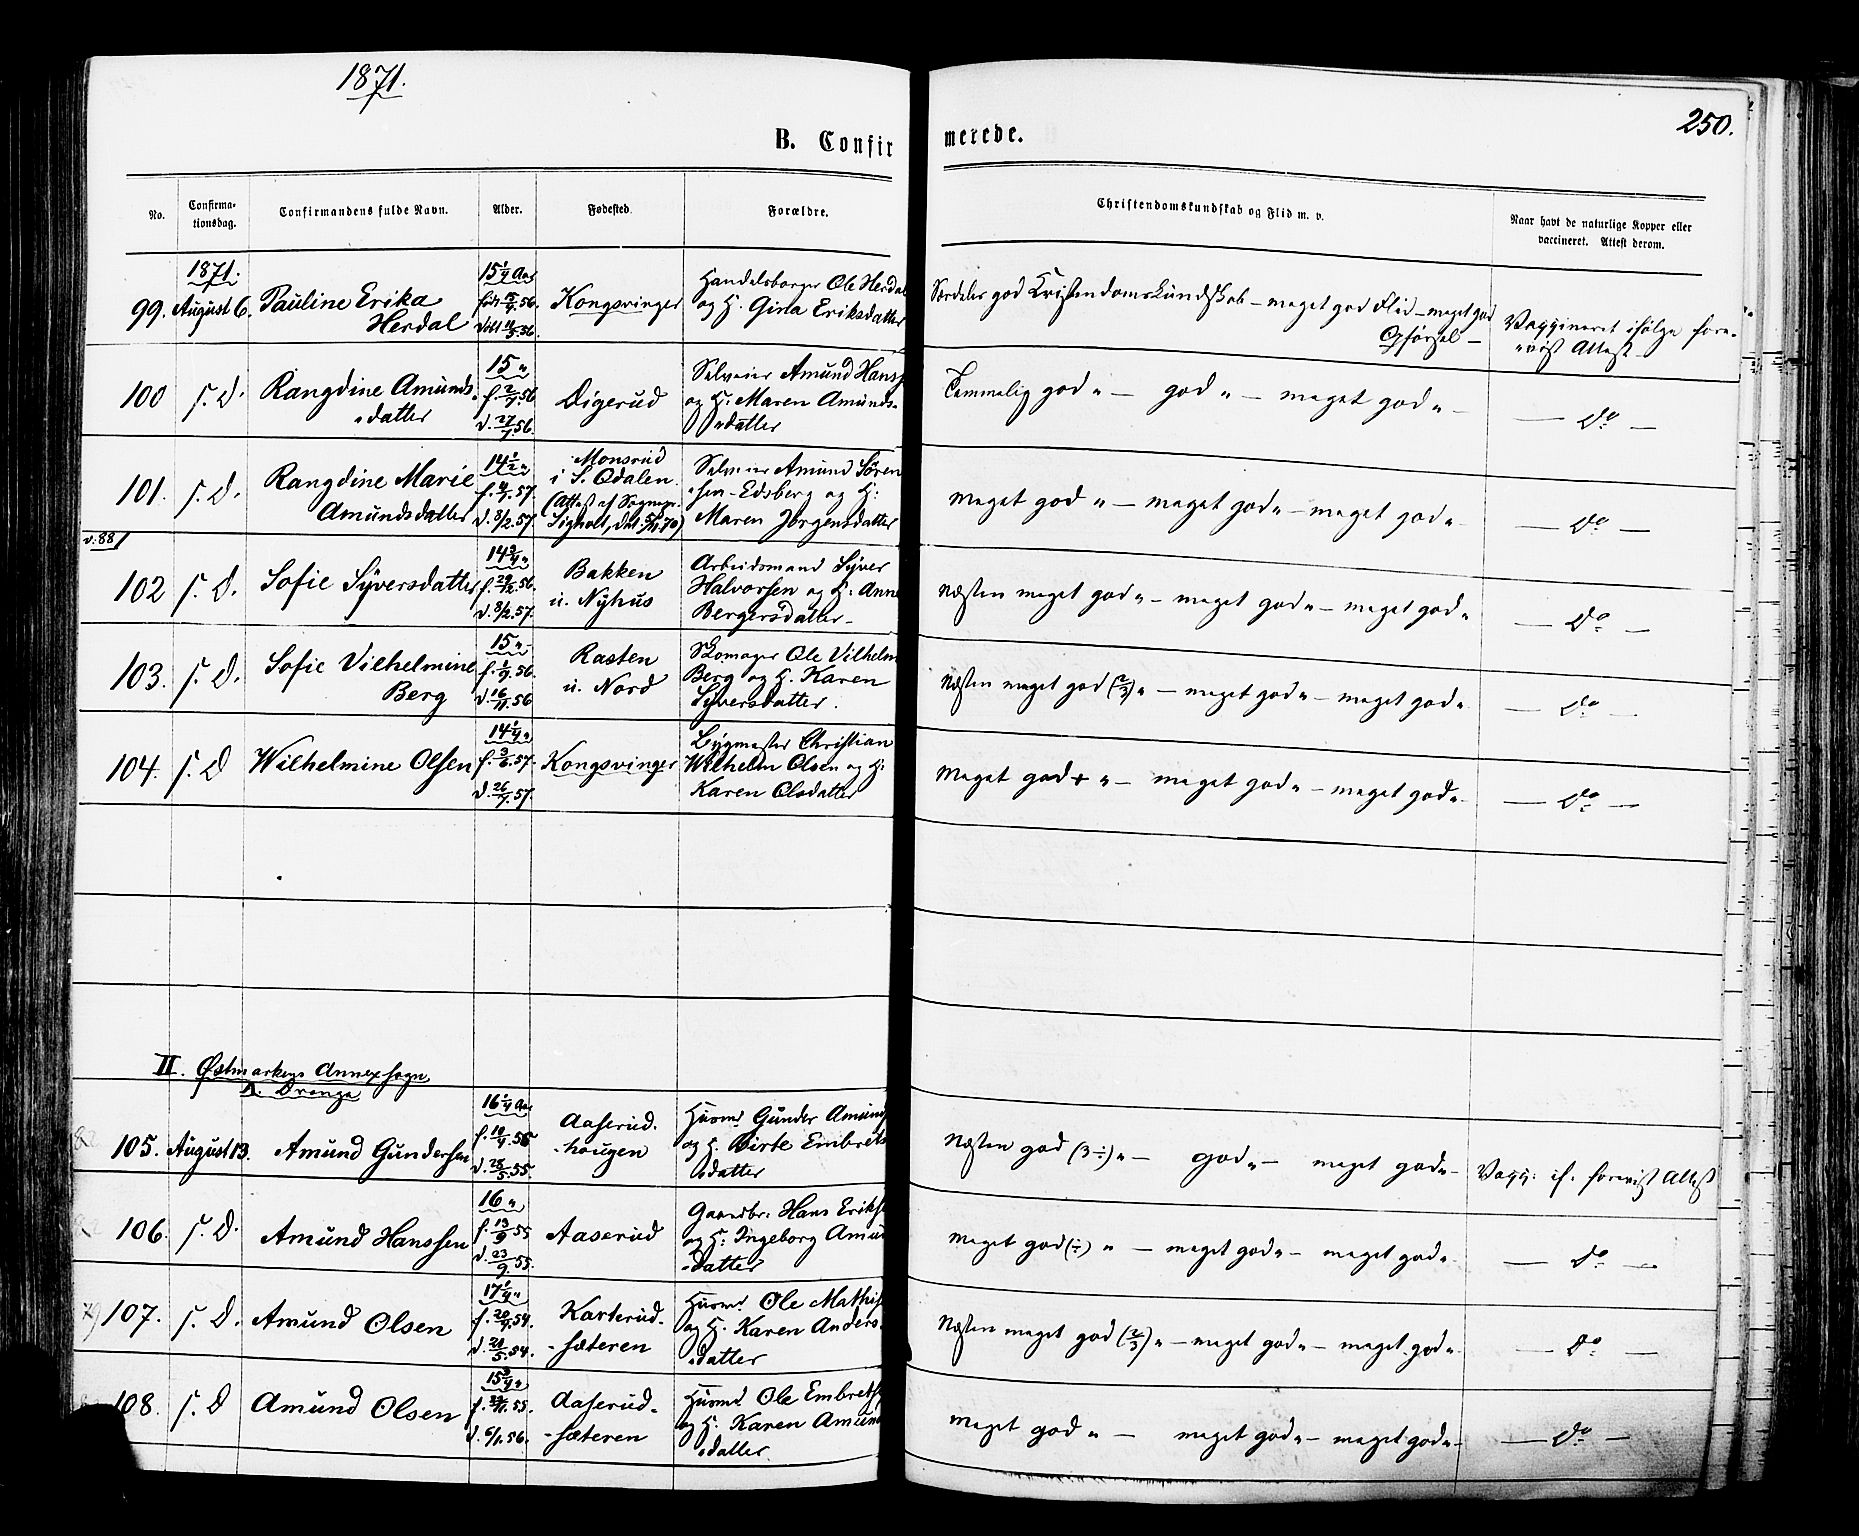 1871.
250.
B. Confirmerede.
No.
Confirma-
tionsdag.
Confirmandens fulde Navn.
Alder.
Fødested.
Forældre.
Christendomskundskab og Flid m. v.
Naar havt de naturlige Kopper eller
vaccineret. Attest derom.
1871.
99. August 6. Pauline Erika
Herdal
15 1/4 Aar
Kongsvinger
Handelsborger Ole Herdal
og H. Eriksdatter
Særdeles god Kristendomskundskab – meget god Flid – meget god
Opførsel –
Vaxxineret ifølge fore-
vist Attest
100 s. D. Rangdine Amunds-
datter
15 "
f. 2/7 56
d. 27/7 56.
Digerud
Selveier Amund Hanss
og H: Maren Amunds-
datter
Temmelig god " – god " – meget god " –
– do –
101. s. D. Rangdine Marie
Amundsdatter
14 1/2 "
d. 8/2.57.
Monsrud
i S. Odalen
(Attest af Sognepr.
Maren Jørgensdatter
Selveier Amund Sören-
sen – Edsberg og H:
Meget god " – meget god " – meget god " –
– do –
v. 88
102 s. D. Sofie Syversdatter
14 3/4 "
f. 29/12.56.
d. 8/2.57.
Bakken
u. Nyhus
Arbeidsmand Syver
Halvorsen og H: Anne
Bergersdatter –
Næsten meget god " – meget god " – meget god "
– do –
103. s. D. Sofie Vilhelmine
Berg
15 "
f. 1/9.56.
d. 16/11.56
Rasten
u. Nord
Skomager Ole Vilhelm
Berg og H. Karen
Syversdatter.
Næsten meget god (2/3) " – meget god " – meget god "
– do –
104. s. D Wilhelmine Olsen
14 1/4 "
f. 3/6.57.
d. 26/7.57.
Kongsvinger
Bygmester Christian
Wilhelm Olsen og H:
Karen Olsdatter
Meget god + " – meget god " – meget god " –
– do –
II. Østmarkens Annexsogn.
A. Drenge
105. August 13. Amund Gundersen
16 1/4 Aar
f. 19/4.55
d. 28/5.55.
Aaserud-
-haugen
Husmd Gunder Amunds
og H. Birte Embrets-
datter
Næsten god (3÷) " – god " – meget god " –
Vaxx: if. forevist Attest
106. s. D. Amund Hanssen
16 "
f. 13/9 55
d. 23/9.55.
Aaserud
Gaardbr: Hans Eriks
og H: Ingeborg Amun
datter
Meget god (÷) " – meget god " – meget god " –
– do –
79 107. s. D. Amund Olsen
17 1/4 "
f. 20/4.54.
d. 21/5.54.
Karterud-
-sæteren
Husmd Ole Mathis
og H. Karen Anders-
datter
Næsten meget god (2/3) " – meget god " – meget god " –
– do –
108. s. D Amund Olsen
15 3/4 "
d. 6/1.56.
Aaserud-
-sæteren
Husmd Ole Embrets
og H. Karen Amund
datter.
Meget god " – meget god " – meget god " –
– do –